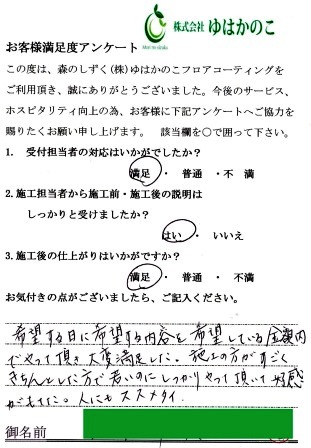 株式会社 ゆはかのこ
Mori no sizuku
お客様満足度アンケート
この度は、森のしずく(株)ゆはかのこフロアコーティングを
ご利用頂き、誠にありがとうございました。今後のサービス、
ホスピタリティ向上の為、お客様に下記アンケートへご協力を
賜りたくお願い申し上げます。 該当欄を○で囲って下さい。
1. 受付担当者の対応はいかがでしたか?
満足 ・ 普通 ・ 不 満
2. 施工担当者から施工前・施工後の説明は
しっかりと受けましたか?
はい ・ いいえ
3. 施工後の仕上がりはいかがですか?
満足 ・ 普通 ・ 不満
お気付きの点がございましたら、ご記入ください。
希望する日に希望する内容を希望している金額内
でやって頂き大変満足した。施工の方がすごく
きちんとした方で若いのにしっかりやって頂いて好感
がもてた。人にもススメタイ.
御名前